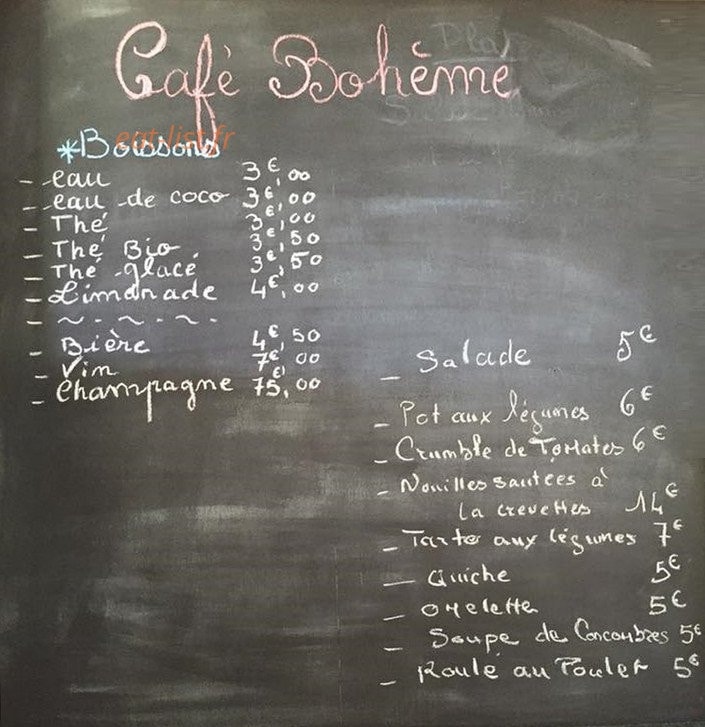 Café Bohème
eat-list.fr
*Boissons
- eau 3€,00
- eau de coco 3€,00
- Thé 3€,00
- Thé Bio 3€,50
- Thé glacé 3€,50
- Limonade 4€,00
- ~ - ~ - ~ -
- Bière 4€,50
- Vin 7€,00
- Champagne 75€,00
- Salade 5€
- Pot aux légumes 6€
- Crumble de Tomates 6€
- Nouilles sautées à
la crevettes 14€
- Tarte aux légumes 7€
- Quiche 5€
- omelette 5€
- Soupe de Concombres 5€
- Roulé au Poulet 5€